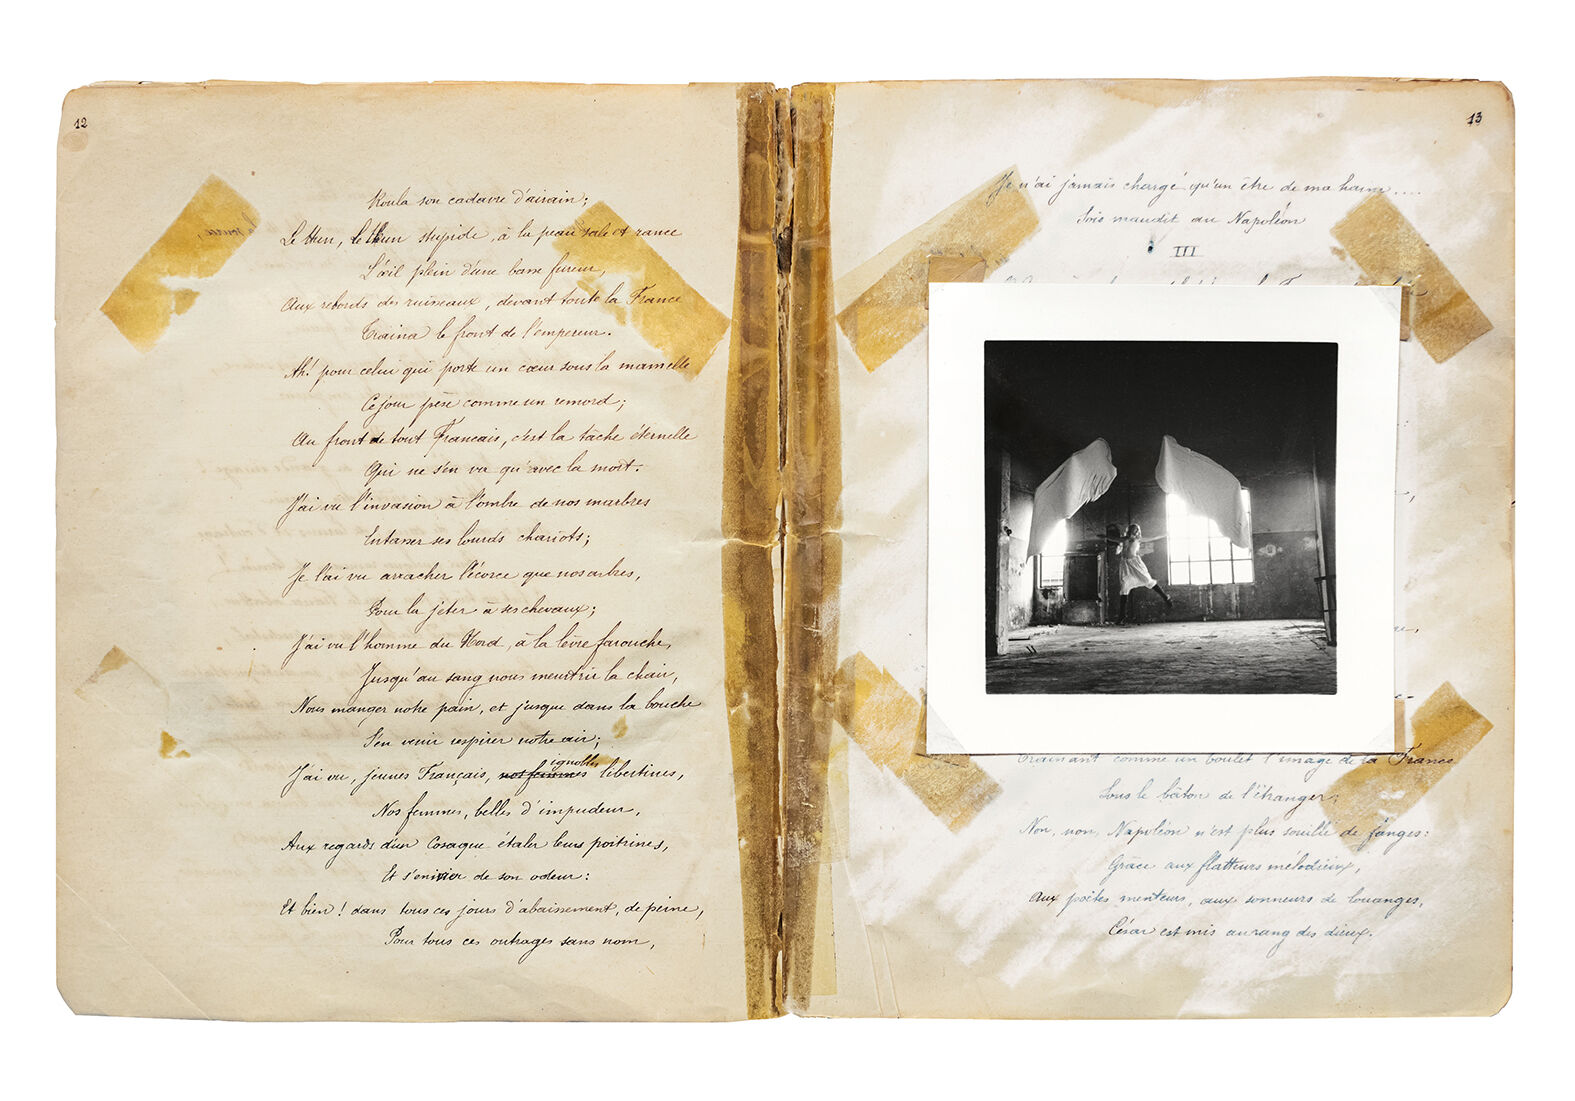 12
Roula son cadavre d'airain;
Le Hun, le Hun stupide, à la peau sale et rance
L'œil plein d'une basse fureur,
Aux rebords des ruisseaux, devant toute la France
Traina le front de l'empereur.
Ah! pour celui qui porte un cœur sous la mamelle
Ce jour pèse comme un remord;
Au front de tout Francais, c'est la tâche éternelle
Qui ne s'en va qu'avec la mort.
J'ai vu l'invasion à l'ombre de nos marbres
Entasser ses lourds chariots;
Je l'ai vu arracher l'écorce que nos arbres,
Pour la jeter à ses chevaux;
J'ai vu l'homme du Nord, à la lèvre farouche,
Jusqu'au sang nous meurtrir la chair,
Nous manger notre pain, et jusque dans la bouche
S'en venir respirer notre air;
J'ai vu, jeunes Français, nos femmes ignobles libertines,
Nos femmes, belles d'impudeur,
Aux regards d'un Cosaque étaler leurs poitrines,
Et s'enivrer de son odeur:
Et bien! dans tous ces jours d'abaissement, de peine,
Pour tous ces outrages sans nom,
13
Je n'ai jamais chargé qu'un être de ma haine....
Sois maudit ou Napoléon
III
Trainant comme un boulet l'image de la France
Sous le bâton de l'étranger;
Non, non, Napoléon n'est plus souillé de fanges:
Grâce aux flatteurs mélodieux,
Aux poètes menteurs, aux sonneurs de louanges,
César est mis au rang des dieux.